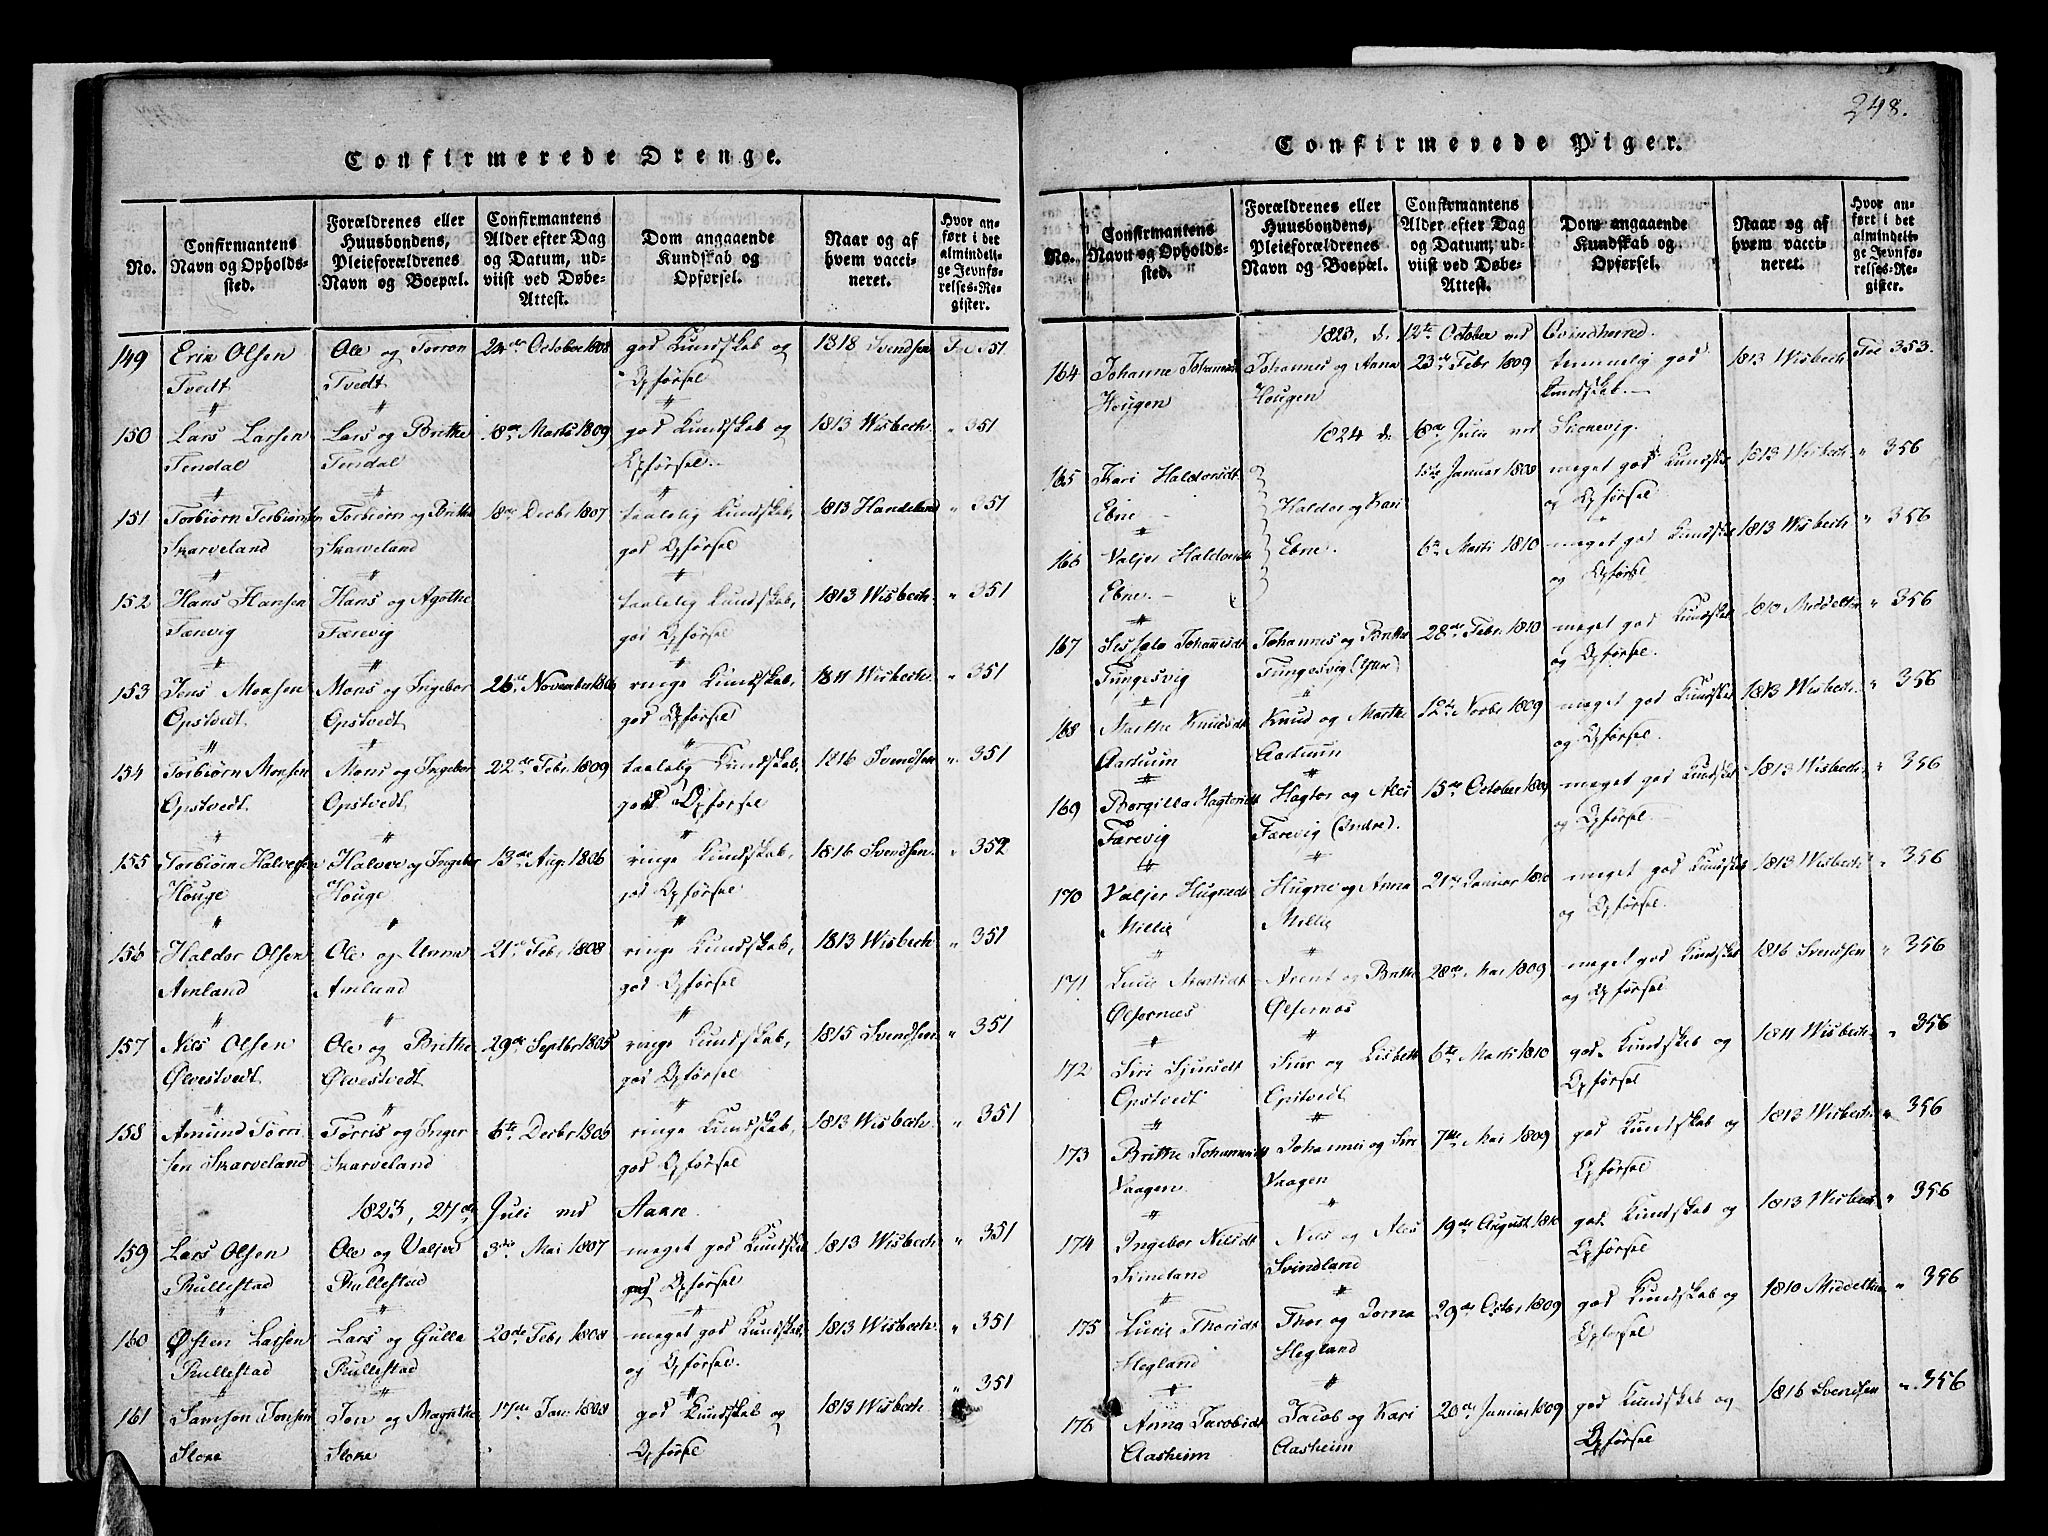 248.
Confirmerede Drenge.
No.
Confirmantens Navn og Opholds-sted.
Forældrenes eller Huusbondens, Pleieforældrenes Navn og Boepæl.
Confirmantens Alder efter Dag og Datum, ud-viist ved Døbe-Attest.
Dom angaaende Kundskab og Opførsel.
Naar og af hvem vacci-neret.
Hvor an-ført i det almindeli-ge Jevnfø-relses-Re-gister.
149 Erik Olsen Ole og Torron 24de October 1808 god Kundskab og 1818 Svendsen 351
Tvedt Tvedt Opførsel
150 Lars Larsen Lars og Brithe 18de Marts 1809 god Kundskab og 1813 Wisbech " 351
Tindal Tindal Opførsel
151 Torbiørn Torbiørnsen Torbiørn og Brithe 18de Decbr 1807 taalelig Kundskab, 1813 Handeland " 351
Skarveland Skarveland god Opførsel
152 Hans Hansen Hans og Agathe taalelig Kundskab, 1813 Wisbech " 351
Færvig Færvig god Opførsel
153 Jens Monsen Mons og Ingebor 26de November 1806 ringe Kundskab, 1811 Wisbech " 351
Opstvedt Opstvedt god Opførsel
154 Torbiørn Monsen Mons og Ingebor 22de Febr. 1809 taalelig Kundskab, 1816 Svendsen " 351
Opstvedt Opstvedt god Opførsel
155 Torbiørn Halvorsen Halvor og Ingebor 13de Aug. 1806 ringe Kundskab, 1816 Svendsen " 352
Houge Houge god Opførsel
156 Haldor Olsen Ole og Unna 21de Feb. 1808 ringe Kundskab, 1813 Wisbech " 351
Amland Amland god Opførsel
157 Nils Olsen Ole og Brithe 29de Septbr 1805 ringe Kundskab, 1815 Svendsen " 351
Ølvestvedt Ølvestvedt god Opførsel
158 Amund Torri Torris og Inger 6te Decbr 1806 ringe Kundskab, 1813 Wisbech " 351
sen Skarveland Skarveland god Opførsel
1823, 27de Juli ved Aakre.
159 Lars Olsen Ole og Valjer 3die Mai 1807 meget god Kundskab 1813 Wisbech " 351
Rullestad Rullestad og Opførsel
160 Østen Larsen Lars og Gulla 20de Febr. 1808 meget god Kundskab, 1813 Wisbech " 351
Rullestad Rullestad og Opførsel.
161 Samson Jonsen Jon og Magnthe 17de Jan. 1808 god Kundskab og 1813 Wisbech " 351
Stone Stone Opførsel
Confirmerede Piger.
No.
Confirmantens Navn og Opholds-sted.
Forældrenes eller Huusbondens, Pleieforældrenes Navn og Boepæl.
Confirmantens Alder efter Dag og Datum, ud-viist ved Døbe-Attest.
Dom angaaende Kundskab og Opførsel.
Naar og af hvem vacci-neret.
Hvor an-ført i det almindeli-ge Jevnfø-relses-Re-gister.
1823, d. 12te October ved Qvindherred.
164 Johanne Johannesdt Johannes og Anna 23de Febr 1809 temmelig god 1813 Wisbech Fol 353.
Hougen Hougen Kundskab.
1824 d. 18de Julii ved Skonevig.
165 Kari Haldorsdt Haldor og Kari Januar 1808 meget god Kundskab 1813 Wisbech " 356
Ebne Ebne. og Opførsel
166 Valjer Haldorsdt 6te Marti 1810 meget god Kundskab 1813 Wisbech " 356
Ebne. og Opførsel
167 Sissela Johannesdt Johannes og Britha 28de Febr. 1810 meget god Kundskab 1810 Middelton " 356
Tungesvig Tungesvig (Ytter) og Opførsel.
168 Marthe Knudsdt Knud og Marthe 12te Novbr 1809 meget god Kundskab 1813 Wisbech " 356
Aarhuum Aarhuum og Opførsel.
169 Borgilla Hagtorsdt Hagtor og Ales 15de October 1809 meget god Kundskab 1813 Wisbech " 356
Færevig Færevig (Indre). og Opførsel
170 Valjer Hugnedt Hugne og Anna 21de Januar 1810 meget god Kundskab 1813 Wisbech " 356
Millie Millie og Opførsel.
171 Lucie Arentsdt Arent og Brithe 28de Mai 1809 meget god Kundskab 1816 Svendsen " 356
Ølfernæs Ølfernæs og Opførsel
172 Siri Sjursdt Siur og Lisbeth 6te Marti 1810 god Kundskab og 1811 Wisbech " 356
Opstvedt Opstvedt Opførsel
173 Brithe Johannesdt Johannes og Siri 7de Mai 1809 god Kundskab og 1813 Wisbech " 356
Vaagen Vaagen Opførsel
174 Ingebor Nilsdt Niels og Ales 19de August 1810 god Kundskab og 1813 Wisbech " 356
Svindland Svindland Opførsel
175 Lucie Thorsdt Thor og Jorna 29de Octbr 1809 god Kundskab og 1810 Middelton " 356
Hegland Hegland Opførsel
176 Anna Jacobsdt Jacob og Kari 20de Januar 1809 god Kundskab og 1816 Svendsen " 356
Aasheim Aasheim Opførsel